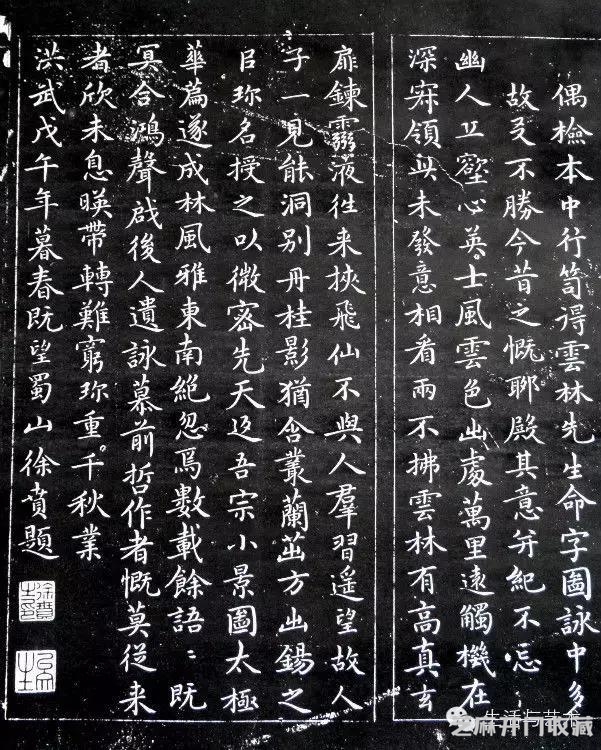 偶檢本中行笥得雲林先生命字圖詠中多
故友不勝今昔之慨聊殿其意并紀不忘
幽人丘壑心英士風雲色出處萬里遠觸機在
深領此未發意相看兩不拂雲林有高真玄
扉鍊靈液往来挾飛仙不與人羣習遥望故人
子一見能洞别丹桂影猶含叢蘭茁方出錫之
以珎名授之以微密先天及吾宗小景圖太極
華篇遂成林風雅東南絶忽焉數載餘語〻既
冥合鴻聲啟後人遺詠慕前哲作者慨莫從来
者欣未息暎帶轉難窮珎重千秋業
洪武戊午年暮春既望蜀山徐賁題
生活与艺术
芝麻开门收藏